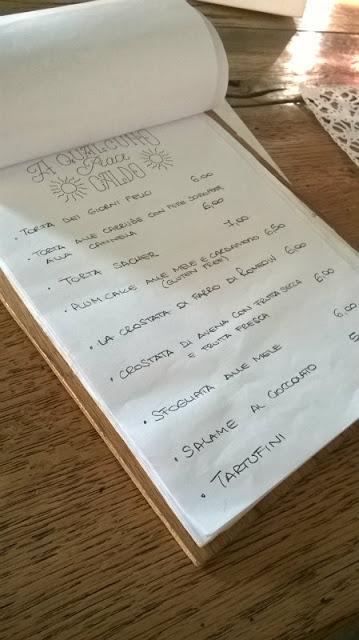 A QUALCUNO
PIACE
CALDO
• TORTA DEI GIORNI FELICI 6,00
• TORTA ALLE CAROTE CON PERE
ALLA CANNELLA 6,00
• TORTA SACHER 7,00
• PLUM CAKE ALLE MELE E CARDAMOMO 6,50
(GLUTEN FREE)
• LA CROSTATA DI FARRO DI 6,00
• CROSTATA DI AVENA CON FRUTTA SECCA 6,00
E FRUTTA FRESCA
• SFOGLIATA ALLE MELE 6,00
• SALAME AL CIOCCOLATO 5
• TARTUFINI